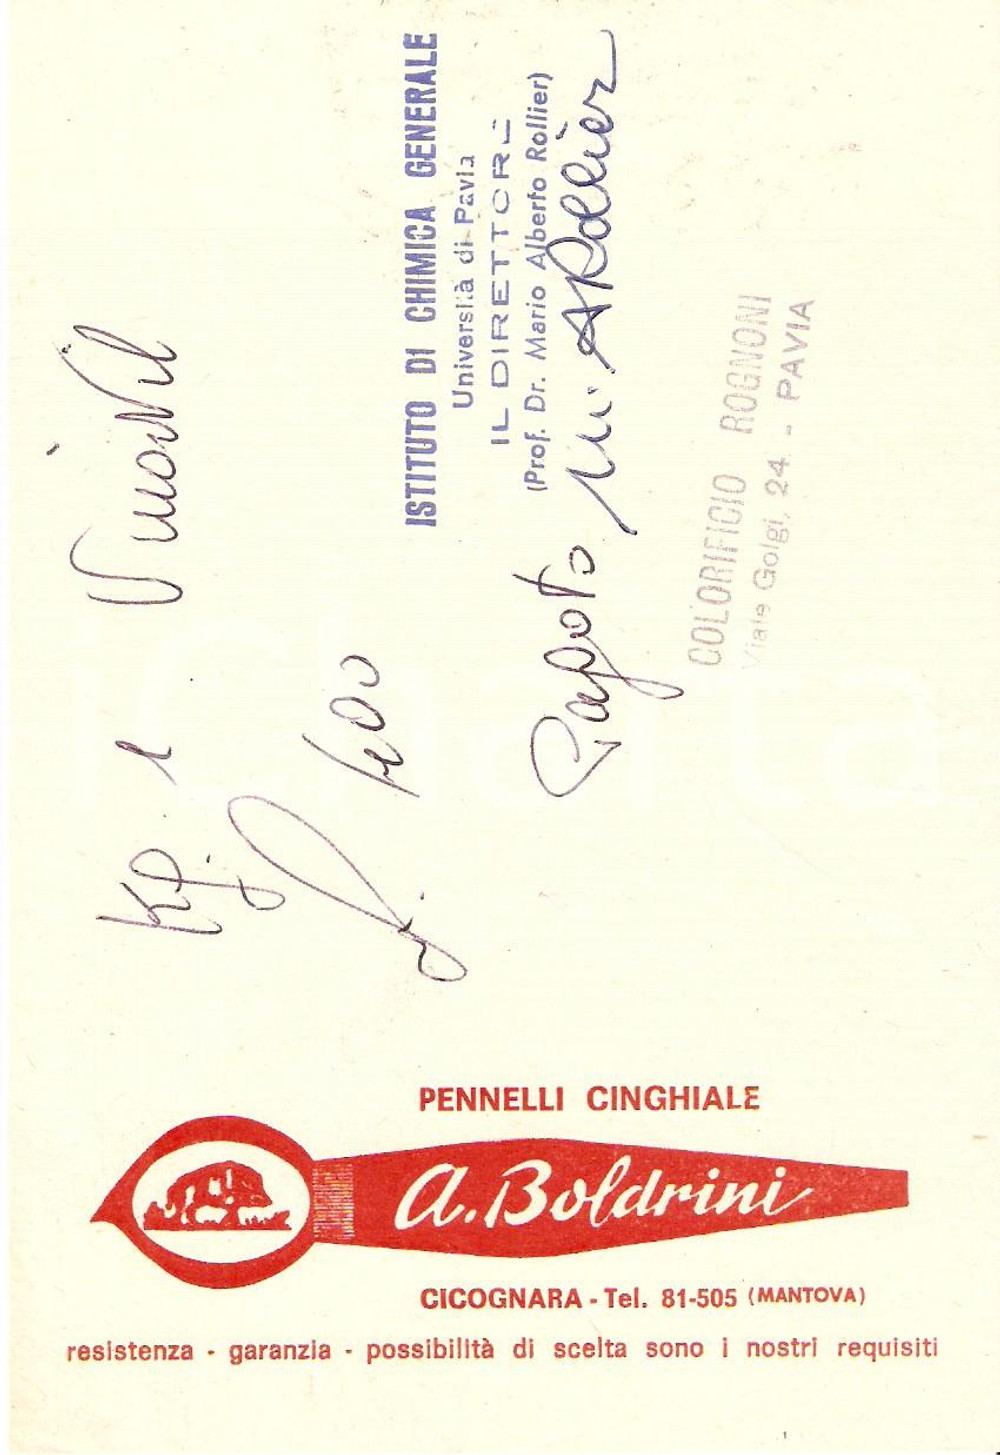 PENNELLI CINGHIALE
A. Boldrini
CICOGNARA - Tel. 81-505 (MANTOVA)
resistenza - garanzia - possibilità di scelta sono i nostri requisiti
Kg. 1 Vinavil
L. 400
ISTITUTO DI CHIMICA GENERALE
Università di Pavia
IL DIRETTORE
(Prof. Dr. Mario Alberto Rollier)
Pagato M. A Rollier
COLORIFICIO ROGNONI
Viale Golgi, 24 - PAVIA